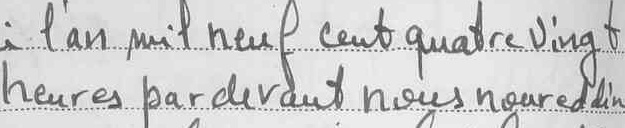 i l'an mil neuf cent quatre vingt
heures par devant nous noureddin